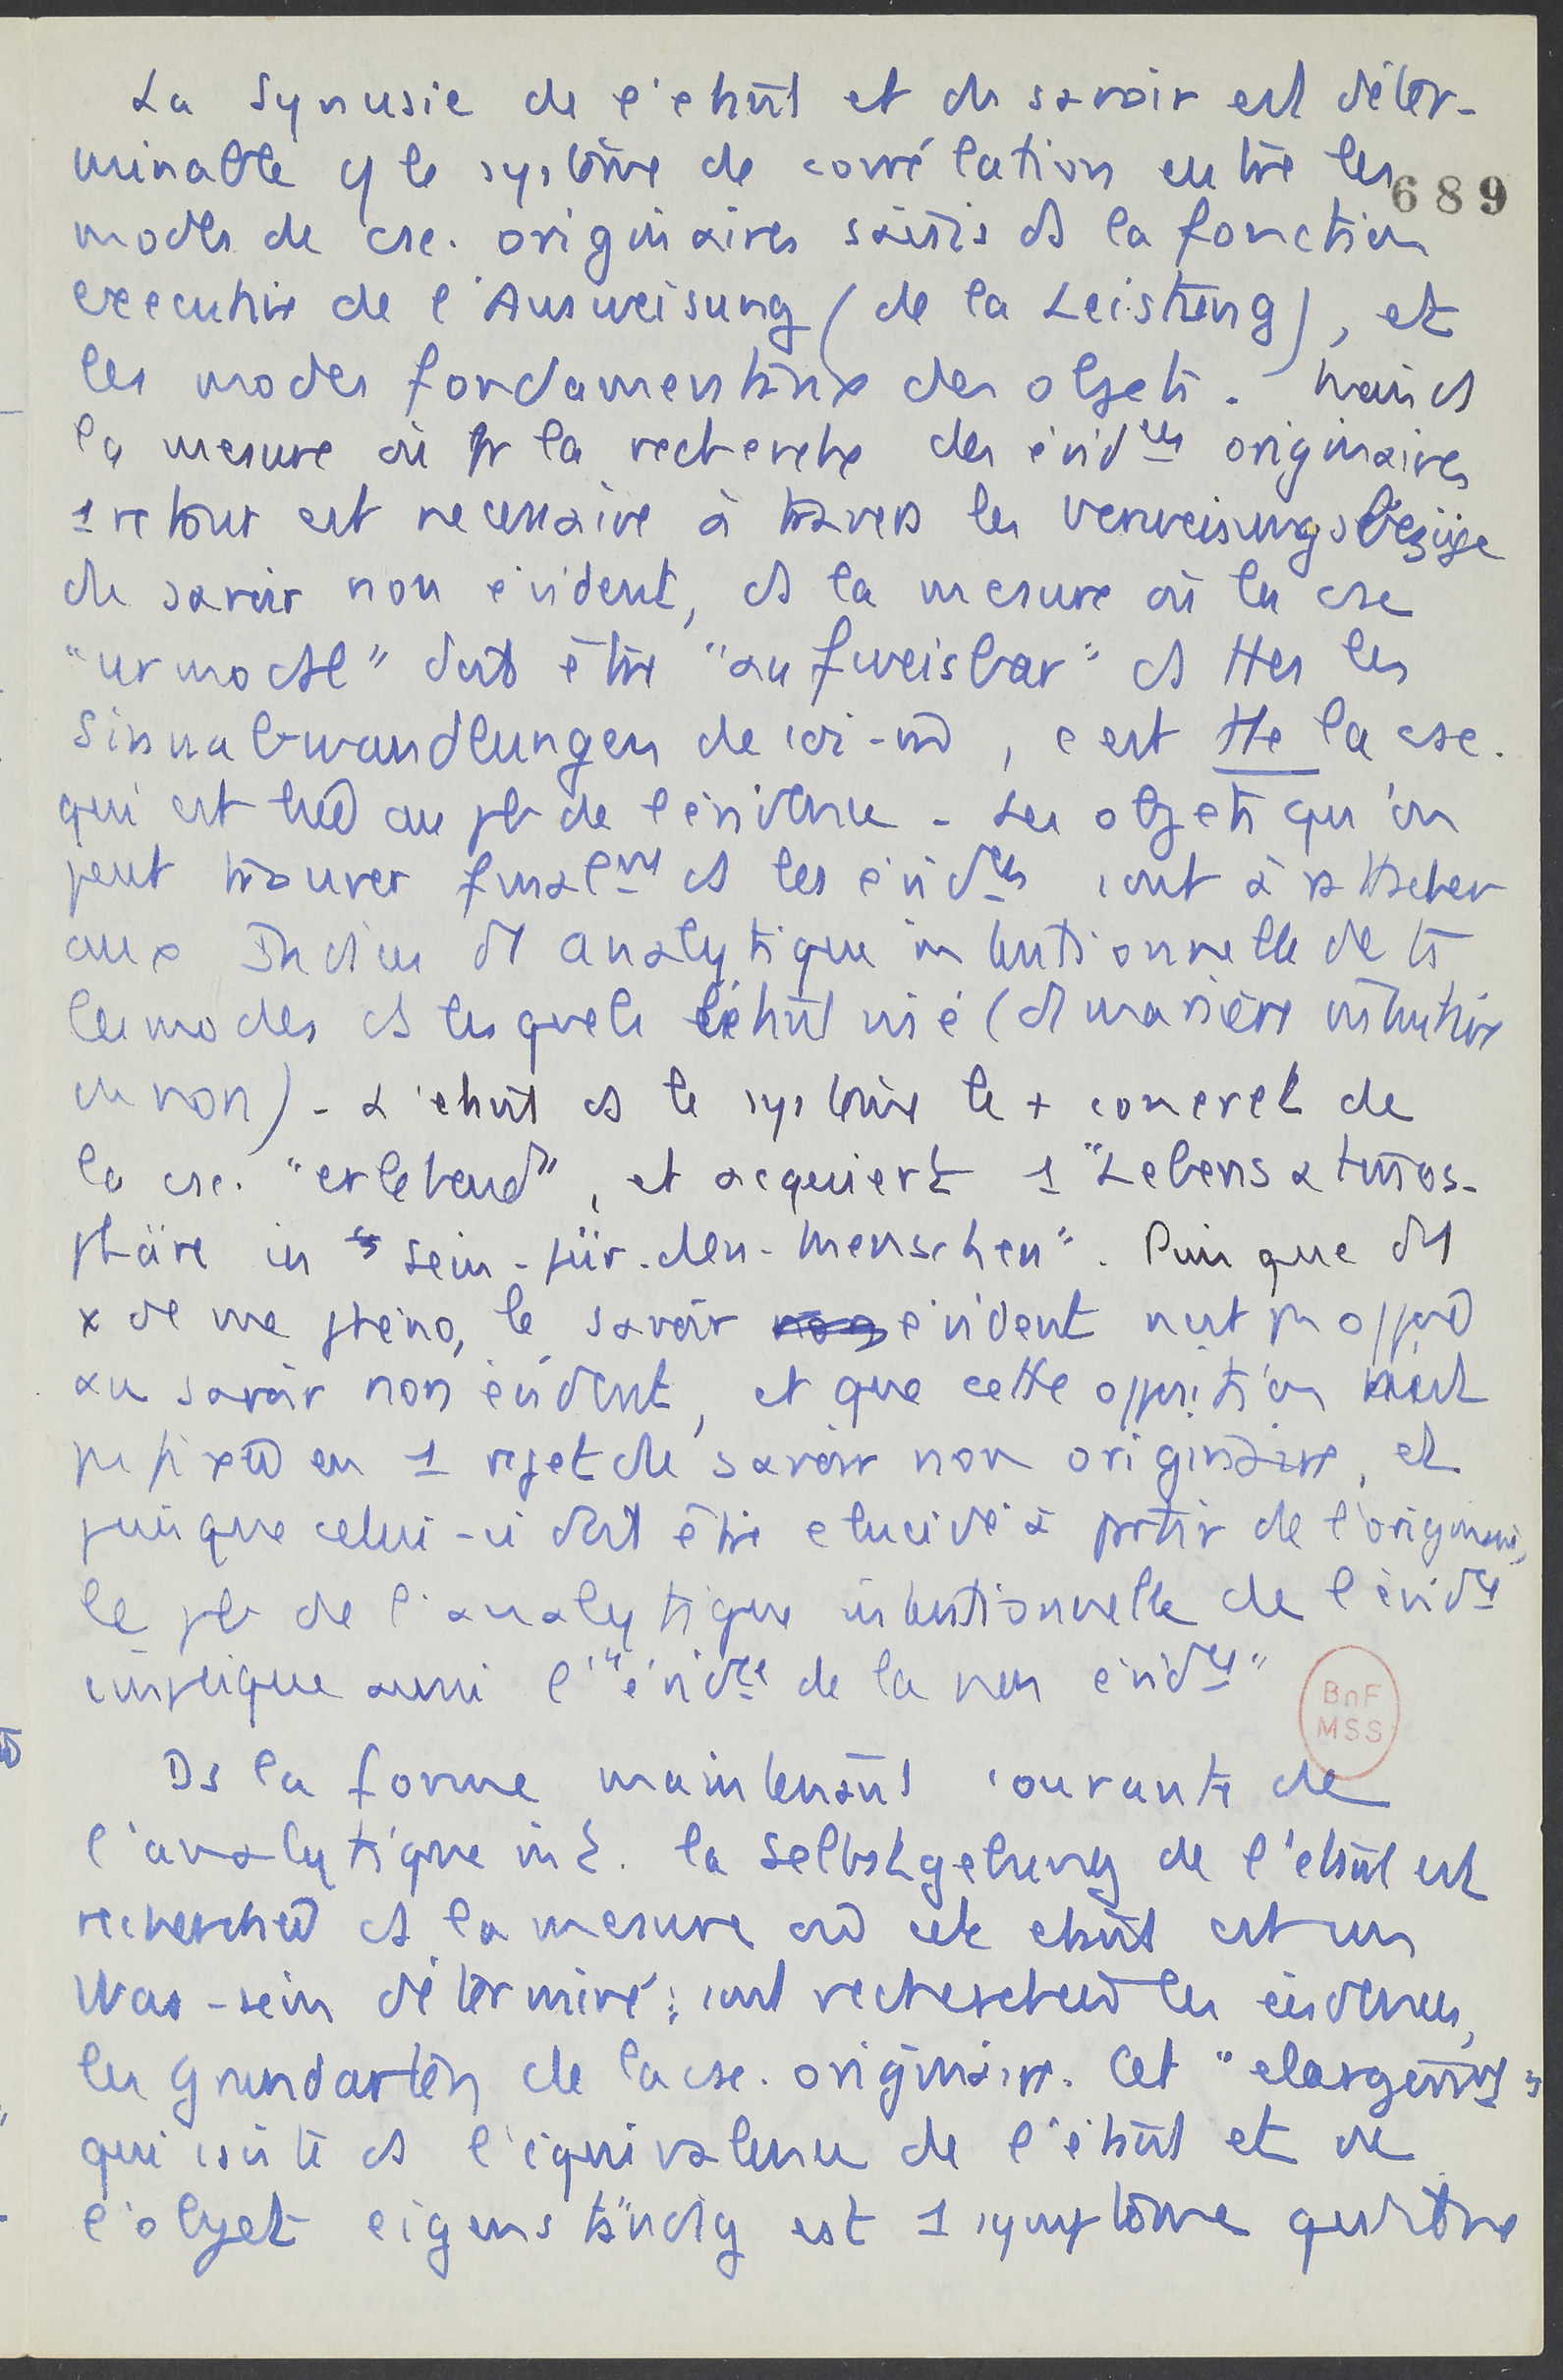 La Synusie de l'étant et du savoir est déter-
minable ds le système de corrélation entre les
689
modes de csc. originaires saisis ds la fonction
executive de l'Ausweisung (de la Leistung), et
les modes fondamentaux des objets. Mais ds
la mesure où pr la recherche des évidces originaires
1 retour est necessaire à travers les Verweisungsbezüge
du savoir non évident, ds la mesure où la csc
"urmodal" doit être "aufweisbar" ds ttes les
Sinnabwandlungen de soi-m̂, c'est tte la csc.
qui est liée au pb de l'évidence - Les objets qu'on
peut trouver finalmt ds les évidces sont à rattacher
aux Indices d' analytique intentionnelle de ts
les modes ds lesquels l'étant visé (d' manière intuitive
ou non) - L'étant ds le système le + concret de
la csc. "erlebend", et acquiert 1 "Lebensatmos-
phäre in Sein-für-den-Menschen". Puisque ds
de une phéno, le savoir évident n'est pas opposé
au savoir non évident, et que cette opposition n'est
pas fixée en 1 rejet du savoir non originaire, et
puisque celui-ci doit être elucidé à partir de l'originaire,
le pb de l'analytique intentionnelle de l'évidce
implique aussi l'"évidce de la non évidce"
BnF
MSS
Ds la forme maintenant courante de
l'analytique int. la Selbstgebung de l'étant est
recherchée ds la mesure où cet étant est un
Was-sein déterminé; sont recherchées les évidences,
les Grundarten de la csc. originaire. Cet "elargissmt"
qui existe ds l'équivalence de l'étant et de
l'objet eigenständig est 1 symptôme